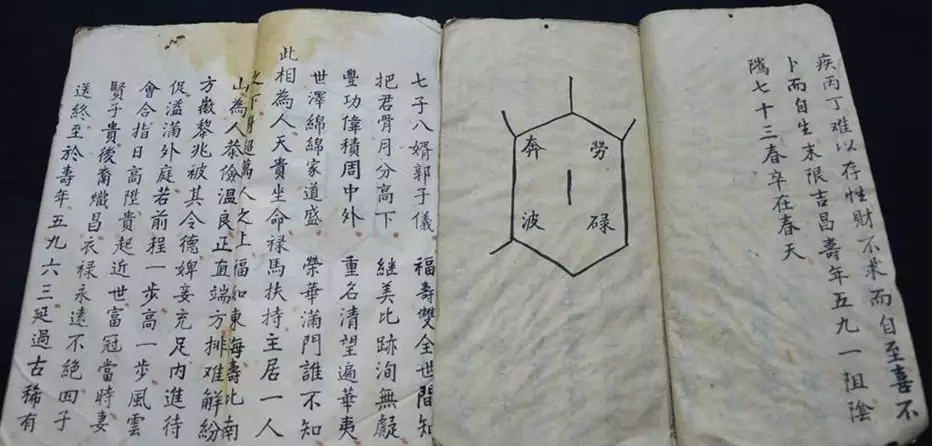 疾丙丁难以存性財不求而自至喜不
卜而自生末限吉昌壽年五九一阻陰
隲七十三春卒在春天
勞碌
奔波
七子八婿郭子儀 福壽雙全世間知
把君骨月分高下 继美比跡洵無疑
豐功偉積周中外 重名清望遍華夷
世澤綿綿家道盛 榮華滿門誰不知
此相為人天貴坐命禄馬扶持主居一人
之下身超萬人之上福如東海壽比南
山為人恭儉温良正直端方排难解紛
方徽黎兆被其令德婢妾充足内進待
促溢滿外庭若前程一步高一步風雲
會合指日高陞貴起近世富冠當時妻
賢子貴後裔熾昌衣禄永遠不絶四子
送終至於壽年五九六三延過古稀有